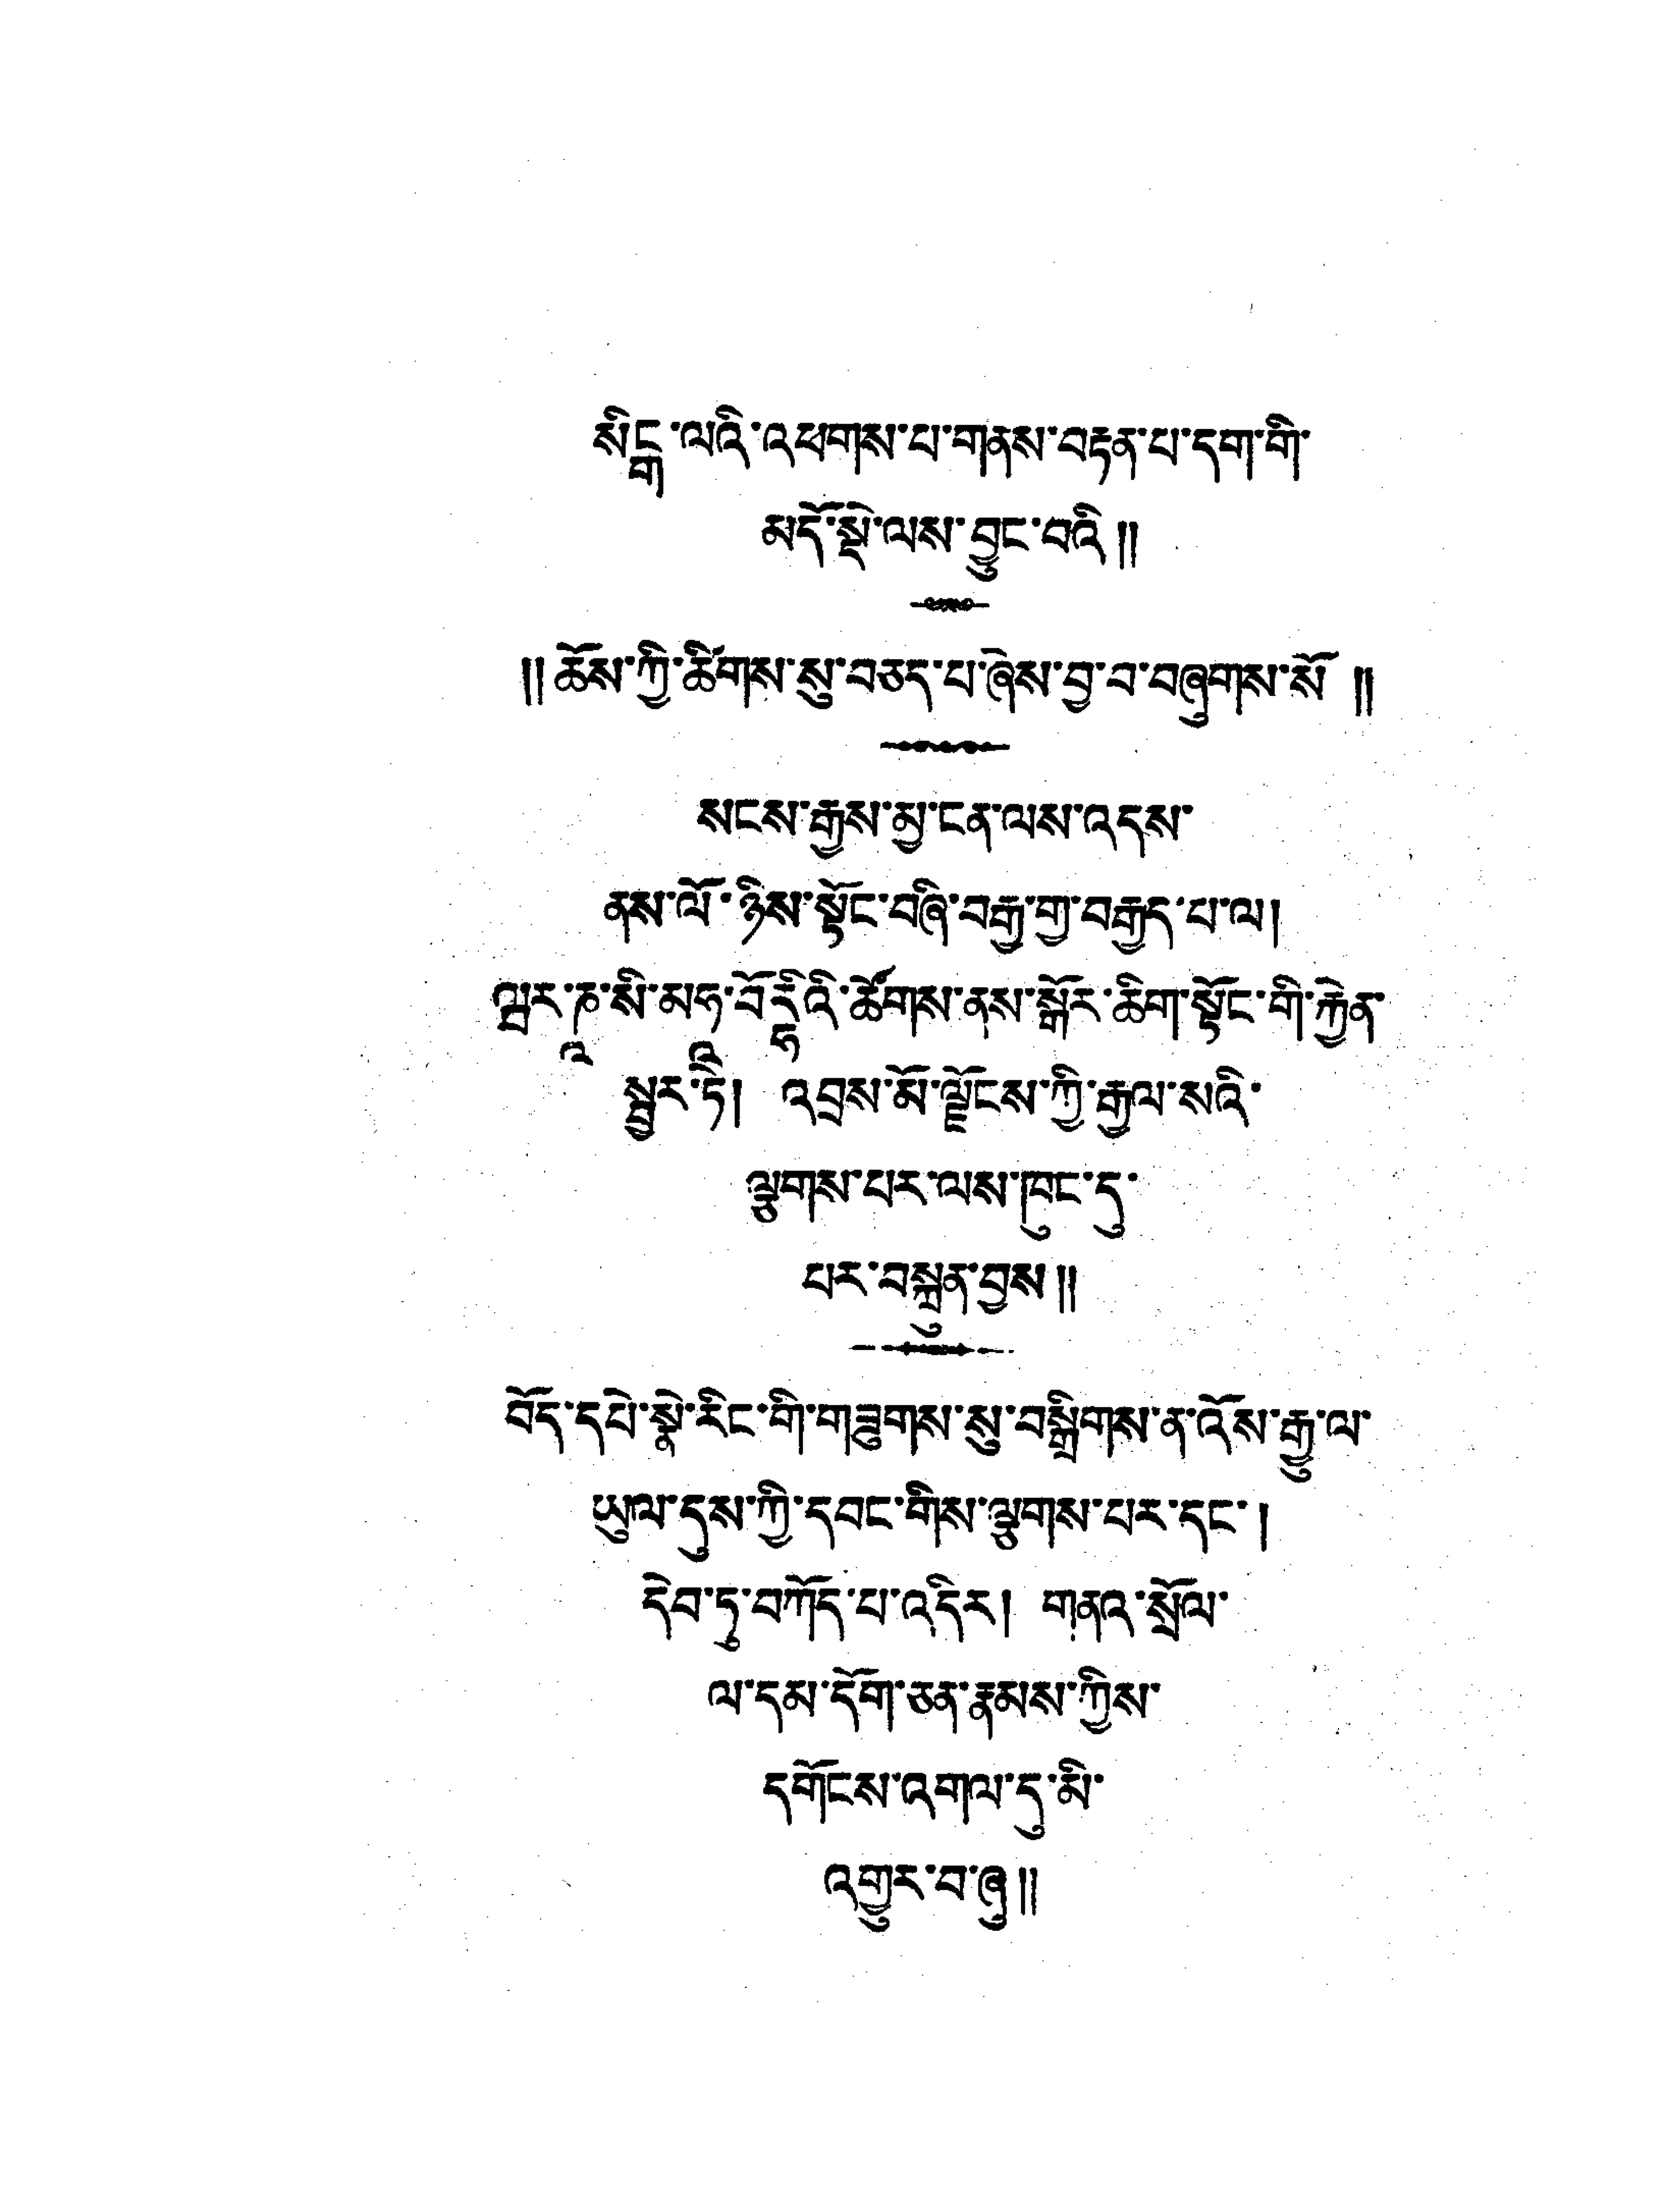 སིངྒ་ལའི་འཕགས་པ་གནས་བརྟན་པ་དག་གི་
མདོ་སྡེ་ལས་བྱུང་བའི༎
༎ཆོས་ཀྱི་ཚིགས་སུ་བཅད་པ་ཞེས་བྱ་བ་བཞུགས་སོ༎
སངས་རྒྱས་མྱ་ངན་ལས་འདས་
ནས་ལོ་ཉིས་སྟོང་བཞི་བརྒྱ་གྱ་བརྒྱད་པ་ལ།
ཝཱར་ཎཱ་སི་མཧཱ་བོདྷིའི་ཚོགས་ནས་སྒོར་ཆིག་སྟོང་གི་རྐྱེན་
སྦྱར་ཏེ། འབྲས་མོ་ལྗོངས་ཀྱི་རྒྱལ་སའི་
ལྕགས་པར་ལས་ཁུང་དུ་
པར་བསྐྲུན་བྱས༎
བོད་དཔེ་སྣེ་རིང་གི་གཟུགས་སུ་བསྒྲིགས་ན་འོས་རྒྱུ་ལ་
ཡུལ་དུས་ཀྱི་དབང་གིས་ལྕགས་པར་དང་།
དེབ་ཏུ་བཀོད་པ་འདིར། གནའ་སྲོལ་
ལ་དམ་དོག་ཅན་རྣམས་ཀྱིས་
དགོངས་འགལ་དུ་མི་
འགྱུར་བ་ཞུ༎